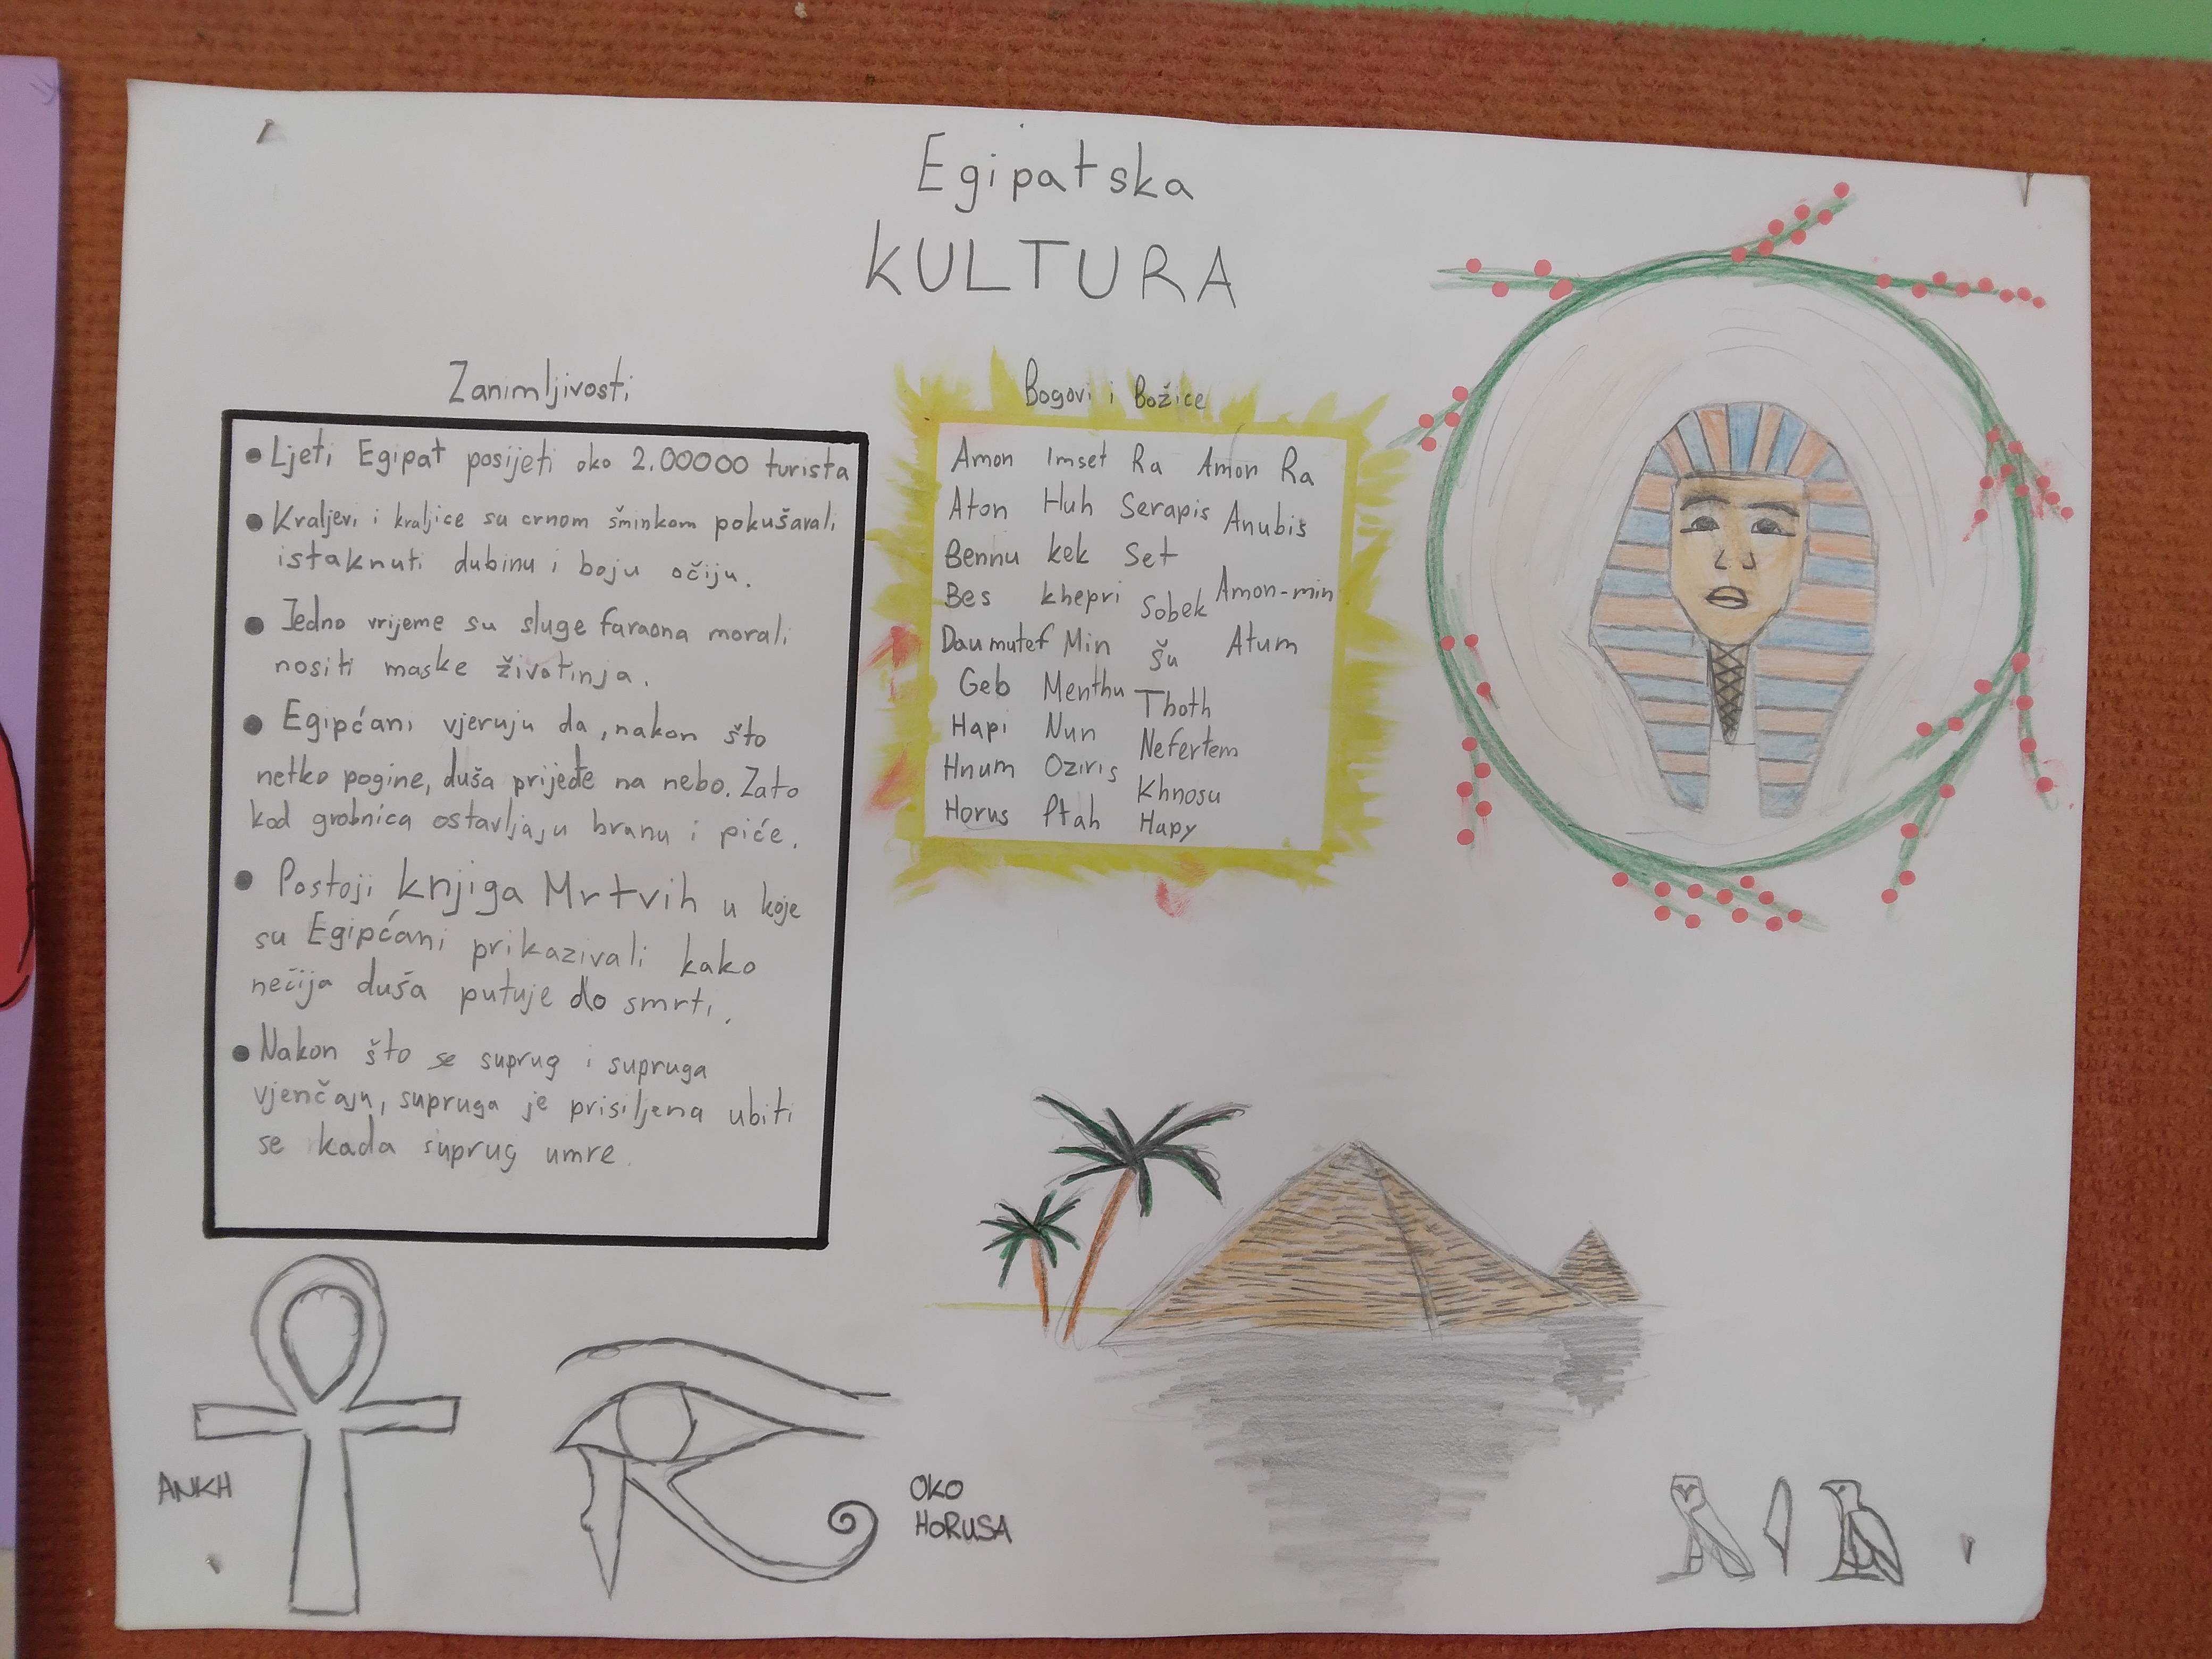 Egipatska
KULTURA
Zanimljivosti
● Ljeti Egipat posijeti oko 2.00000 turista
● Kraljevi i kraljice su crnom šminkom pokušavali
istaknuti dubinu i boju očiju.
● Jedno vrijeme su sluge faraona morali
nositi maske životinja.
● Egipćani vjeruju da, nakon što
netko pogine, duša prijeđe na nebo. Zato
kod grobnica ostavljaju hranu i piće.
● Postoji knjiga Mrtvih u koje
su Egipćani prikazivali kako
nečija duša putuje do smrti.
● Nakon što se suprug i supruga
vjenčaju, supruga je prisiljena ubiti
se kada suprug umre.
Bogovi i Božice
Amon Imset Ra Amon Ra
Aton Huh Serapis Anubis
Bennu kek Set
Bes khepri Sobek Amon-min
Daumutef Min Šu Atum
Geb Menthu Thoth
Hapi Nun Nefertem
Hnum Oziris Khnosu
Horus Ptah Hapy
ANKH
OKO
HORUSA